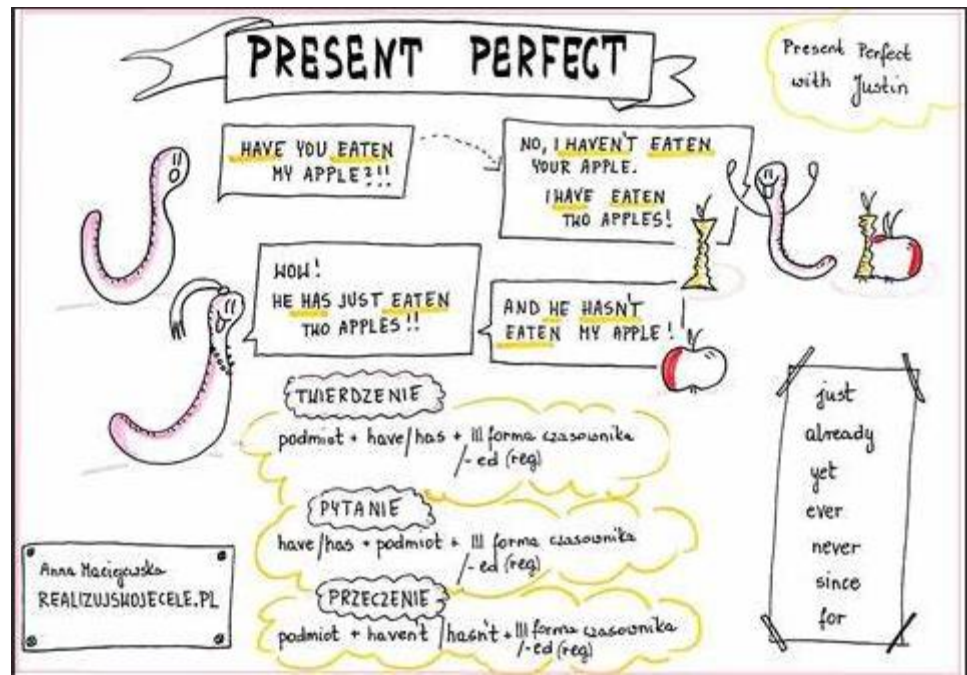 PRESENT PERFECT
Present Perfect
with Justin
HAVE YOU EATEN
MY APPLE?!!
NO, I HAVEN'T EATEN
YOUR APPLE.
I HAVE EATEN
TWO APPLES!
WOW!
HE HAS JUST EATEN
TWO APPLES!!
AND HE HASN'T
EATEN MY APPLE!
TWIERDZENIE
podmiot + have/has + III forma czasownika
/-ed (reg)
PYTANIE
have/has + podmiot + III forma czasownika
/-ed (reg)
PRZECZENIE
podmiot + haven't /hasn't + III forma czasownika
/-ed (reg)
just
already
yet
ever
never
since
for
Anna Maciejewska
REALIZUJSWOJECELE.PL